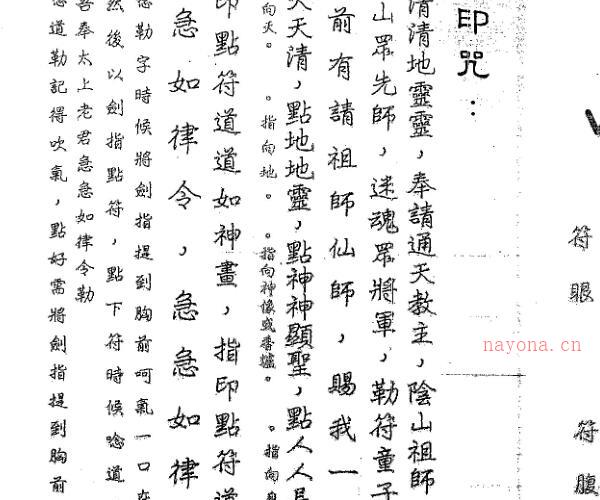 符眼
符腹
印咒：
清清地靈靈，奉請通天教主，陰山祖師
山眾先師，迷魂眾將軍，勒符童子
前有請祖師仙師，賜我一
天天清，點地地靈，點神神顯聖，點人人長
指向天。。指向地。。指向神像或香爐。。指向
印點符道道如神畫，指印點符道
急如律令，急急如律
念勒字時候將劍指提到胸前呵氣一口在
然後以劍指點符，點下符時候唸道
吾奉太上老君急急如律令勒
唸道勒記得吹氣，點好需將劍指提到胸前
nayona.cn